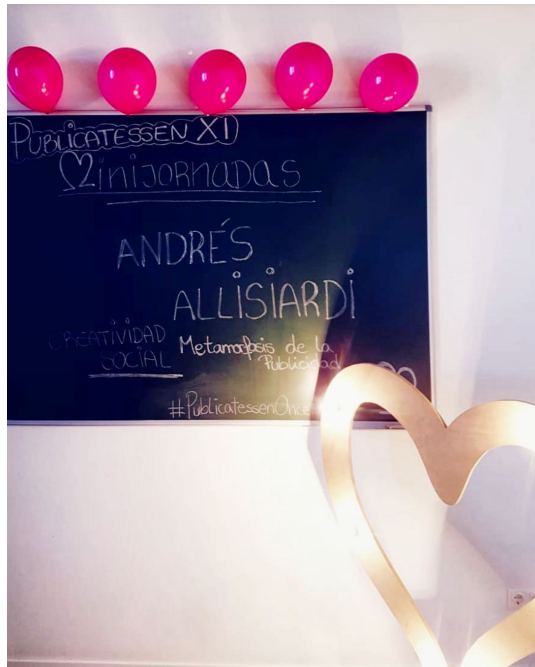 PUBLICATESSEN XI
Minijornadas
ANDRÉS
ALLISIARDI
CREATIVIDAD
SOCIAL
Metamorfosis de la
Publicidad
#PublicatessenOnce